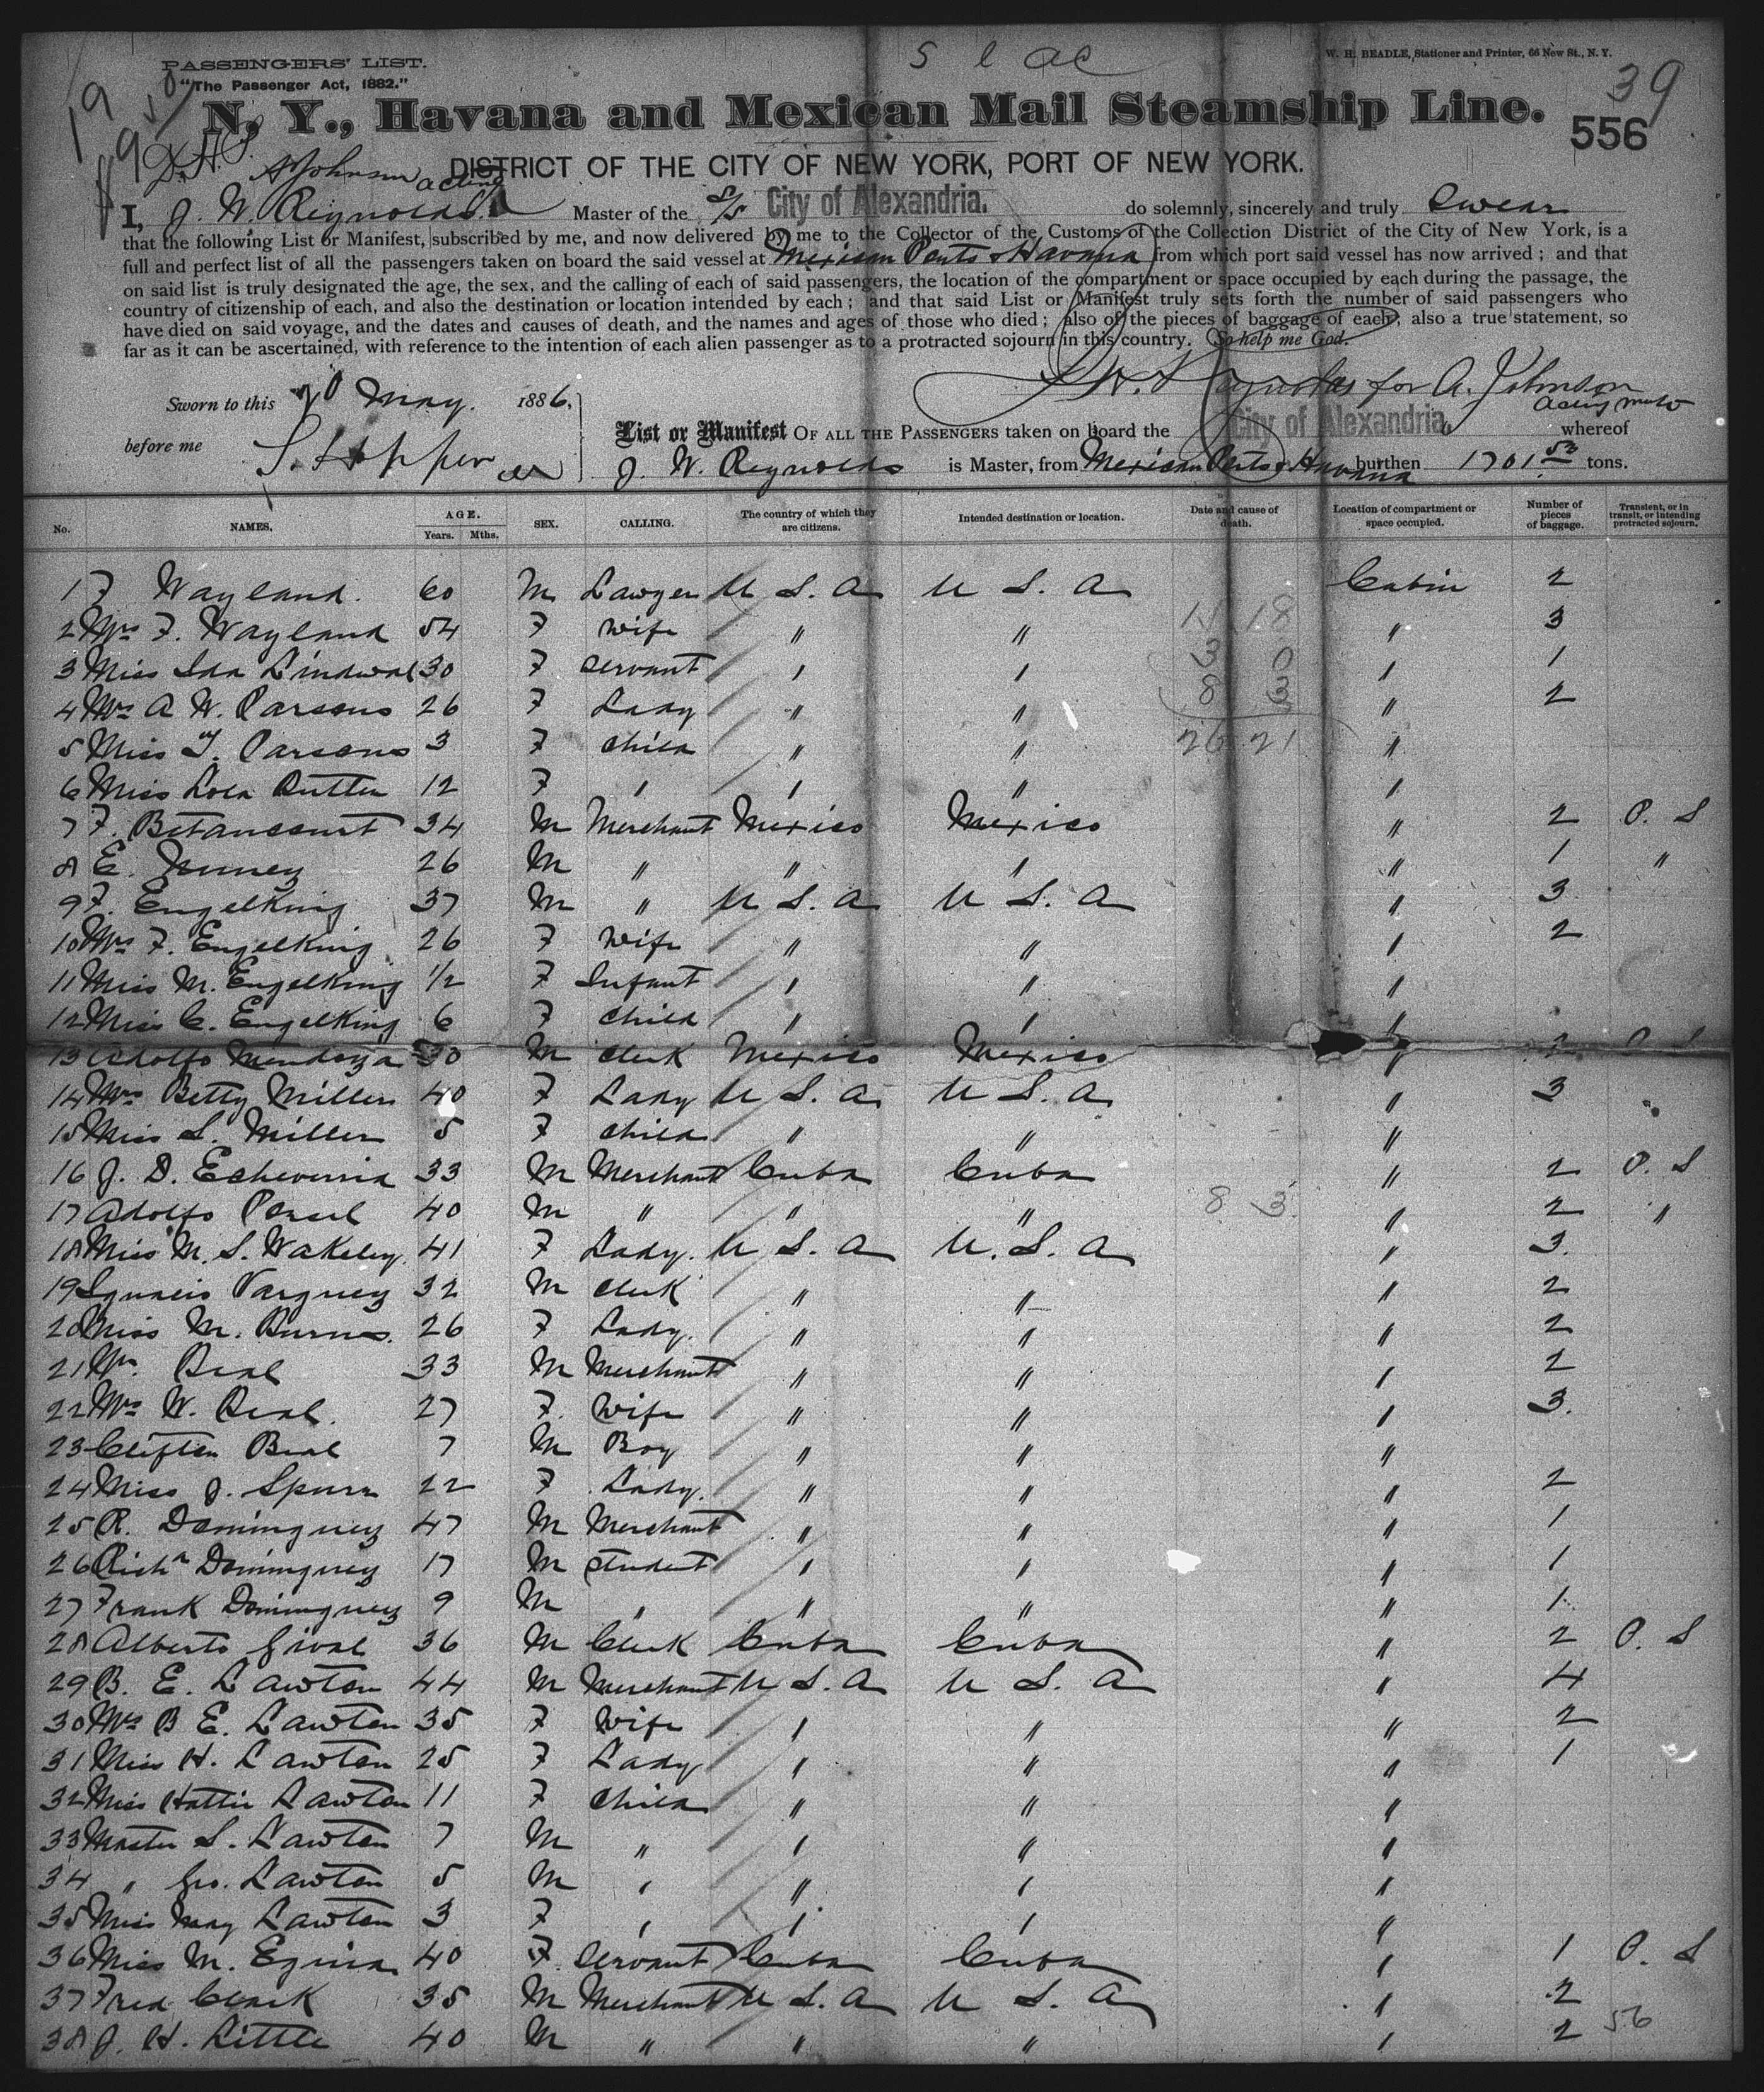 S l ac
PASSENGERS' LIST.
W. H. BEADLE, Stationer and Printer, 66 New St., N. Y.
"The Passenger Act, 1882."
39
19
N. Y., Havana and Mexican Mail Steamship Line.
556
DISTRICT OF THE CITY OF NEW YORK, PORT OF NEW YORK.
A Johnson acting
I, J. W. Reynolds. Master of the S/S City of Alexandria. do solemnly, sincerely and truly Swear
that the following List or Manifest, subscribed by me, and now delivered by me to the Collector of the Customs of the Collection District of the City of New York, is a
full and perfect list of all the passengers taken on board the said vessel at Mexican Ports & Havana from which port said vessel has now arrived; and that
on said list is truly designated the age, the sex, and the calling of each of said passengers, the location of the compartment or space occupied by each during the passage, the
country of citizenship of each, and also the destination or location intended by each; and that said List or Manifest truly sets forth the number of said passengers who
have died on said voyage, and the dates and causes of death, and the names and ages of those who died; also of the pieces of baggage of each; also a true statement, so
far as it can be ascertained, with reference to the intention of each alien passenger as to a protracted sojourn in this country. So help me God.
J W. Reynolds for A. Johnson
acting
Sworn to this 20 May. 1886,
List or Manifest OF ALL THE PASSENGERS taken on board the City of Alexandria, whereof
before me
J. W. Reynolds is Master, from Mexican Ports & Havana burthen 1701 53 tons.
No. NAMES. AGE. Years. Mths. SEX. CALLING. The country of which they are citizens. Intended destination or location. Date and cause of death. Location of compartment or space occupied. Number of pieces of baggage. Transient, or in transit, or intending protracted sojourn.
1 F Wayland. 60 M Lawyer U S. A U S. A Cabin 2
11 18
2 Mrs F. Wayland 54 F wife " " " 3
3 0
3 Miss Ida Lindwal 30 F servant " " " 1
8 3
4 Mrs A W. Parsons 26 F Lady " " " 2
26 21
5 Miss T. Parsons 3 F child " " "
6 Miss Lola Rutter 12 F " " " "
7 F. Betancourt 34 M Merchant Mexico Mexico " 2 P. S
8 E. 26 M " " " " 1 "
9 F. Engelking 37 M " U S. A U S. A " 3
10 Mrs F. Engelking 26 F Wife " " " 2
11 Miss M. Engelking 1/2 F Infant " " "
12 Miss C. Engelking 6 F Child " " "
13 Adolfo Mendoza 30 M Clerk Mexico Mexico "
14 Mrs Betty Miller 40 F Lady U S. A U S. A " 3
15 Miss S. Miller 5 F child " " "
16 J. D. Echeverria 33 M Merchant Cuba Cuba " 2 P. S
17 Adolfo 40 M " " " 8 3 " 2 "
18 Miss M. S. Wakeley. 41 F Lady. U S. A U. S. A " 3.
19 Ignacio Varguez 32 M Clerk " " " 2
20 Miss M. Burns. 26 F Lady. " " " 2
21 Wm. Beal 33 M Merchant " " " 2
22 Mrs W. Beal. 27 F. Wife " " " 3.
23 Clifton Beal 7 M Boy " " "
24 Miss J. Spurr 22 F Lady. " " " 2
25 R. Dominguez 47 M Merchant " " " 1
26 Richd Dominguez 17 M student " " " 1
27 Frank Dominguez 9 M " " " " 1
28 Alberto 36 M Clerk Cuba Cuba " 2 P. S
29 B. E. Lawton 44 M Merchant U S. A U S. A " 4
30 Mrs B E. Lawton 35 F Wife " " " 2
31 Miss H. Lawton 25 F Lady " " " 1
32 Miss Hattie Lawton 11 F Child " " "
33 Master S. Lawton 7 M " " " "
34 " Geo. Lawton 5 M " " " "
35 Miss May Lawton 3 F " " " "
36 Miss M. 40 F Servant Cuba Cuba " 1 P. S
37 Fred Clark 35 M Merchant U S. A U S. A " 2
38 J. H. Little 40 M " " " " 2 56